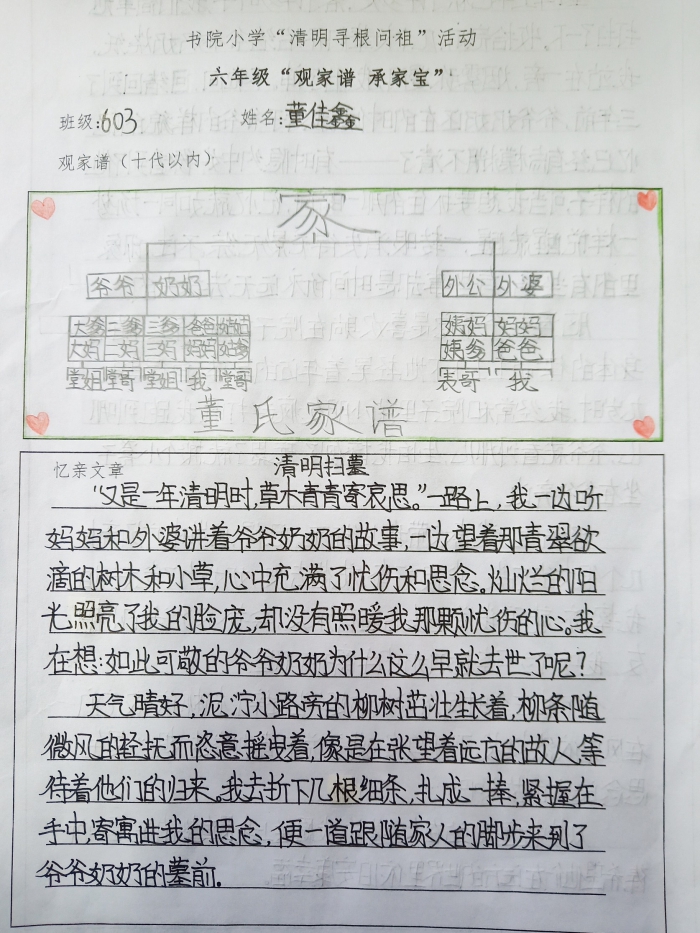 书院小学“清明寻根问祖”活动
六年级“观家谱 承家宝”
班级:603 姓名:董佳鑫
观家谱（十代以内）
家
爷爷 奶奶 外公 外婆
大爹 二爹 三爹 爸爸 姑姑 姨妈 妈妈
大妈 二妈 三妈 妈妈 姑爹 姨爹 爸爸
堂姐 堂哥 堂姐 我 堂哥 表哥 我
董氏家谱
忆亲文章 清明扫墓
“又是一年清明时,草木青青寄哀思。”一路上,我一边听
妈妈和外婆讲着爷爷奶奶的故事,一边望着那青翠欲
滴的树木和小草,心中充满了忧伤和思念。灿烂的阳
光照亮了我的脸庞,却没有照暖我那颗忧伤的心。我
在想:如此可敬的爷爷奶奶为什么这么早就去世了呢?
天气晴好,泥泞小路旁的柳树茁壮生长着,柳条随
微风的轻抚而恣意摇曳着,像是在张望着远方的故人,等
待着他们的归来。我去折下几根细条,扎成一捧,紧握在
手中,寄寓此我的思念,便一道跟随家人的脚步来到了
爷爷奶奶的墓前.